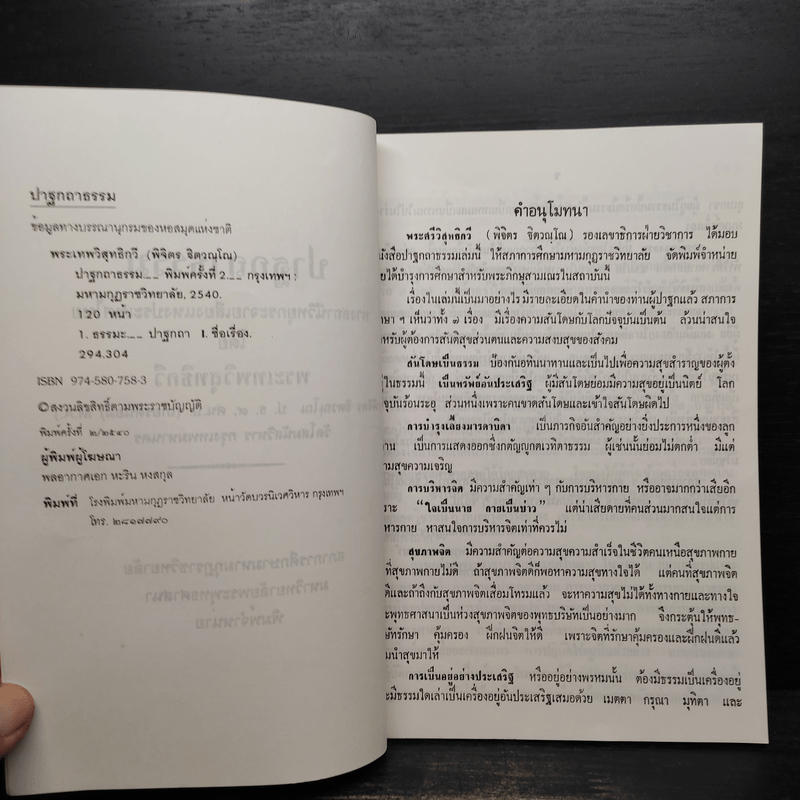 ปาฐกถาธรรม
ข้อมูลทางบรรณานุกรมของหอสมุดแห่งชาติ
พระเทพวิสุทธิกวี (พิจิตร ฐิตวณฺโณ)
ปาฐกถาธรรม.__ พิมพ์ครั้งที่ 2.__ กรุงเทพฯ :
มหามกุฏราชวิทยาลัย, 2540.
120 หน้า
1. ธรรมะ.__ ปาฐกถา I. ชื่อเรื่อง.
294.304
ISBN 974-580-758-3
©สงวนลิขสิทธิ์ตามพระราชบัญญัติ
พิมพ์ครั้งที่ ๒/๒๕๔๐
ผู้พิมพ์ผู้โฆษณา
พลอากาศเอก หะริน หงสกุล
พิมพ์ที่ โรงพิมพ์มหามกุฏราชวิทยาลัย หน้าวัดบวรนิเวศวิหาร กรุงเทพฯ
โทร. ๒๘๑๗๗๙๐
คำอนุโมทนา
พระศรีวิสุทธิกวี (พิจิตร ฐิตวณฺโณ) รองเลขาธิการฝ่ายวิชาการ ได้มอบ
นังสือปาฐกถาธรรมเล่มนี้ ให้สภาการศึกษามหามกุฏราชวิทยาลัย จัดพิมพ์จำหน่าย
ยได้บำรุงการศึกษาสำหรับพระภิกษุสามเณรในสถาบันนี้
เรื่องในเล่มนี้เป็นมาอย่างไร มีรายละเอียดในคำนำของท่านผู้ปาฐกแล้ว สภาการ
ษา ฯ เห็นว่าทั้ง ๑ เรื่อง มีเรื่องความสันโดษกับโลกปัจจุบันเป็นต้น ล้วนน่าสนใจ
หรับผู้ต้องการสันติสุขส่วนตนและความสงบสุขของสังคม
สันโดษเป็นธรรม ป้องกันอทินนาทานและเป็นไปเพื่อความสุขสำราญของผู้ตั้ง
ู่ในธรรมนี้ เป็นทรัพย์อันประเสริฐ ผู้มีสันโดษย่อมมีความสุขอยู่เป็นนิตย์ โลก
จุบันร้อนระอุ ส่วนหนึ่งเพราะคนขาดสันโดษและเข้าใจสันโดษผิดไป
การบำรุงเลี้ยงมารดาบิดา เป็นภารกิจอันสำคัญอย่างยิ่งประการหนึ่งของลูก
าน เป็นการแสดงออกซึ่งกตัญญูกตเวทิตาธรรม ผู้เช่นนั้นย่อมไม่ตกต่ำ มีแต่
ามสุขความเจริญ
การบริหารจิต มีความสำคัญเท่า ๆ กับการบริหารกาย หรืออาจมากกว่าเสียอีก
ราะ “ใจเป็นนาย กายเป็นบ่าว” แต่น่าเสียดายที่คนส่วนมากสนใจแต่การ
หารกาย หาสนใจการบริหารจิตเท่าที่ควรไม่
สุขภาพจิต มีความสำคัญต่อความสุขความสำเร็จในชีวิตคนเหนือสุขภาพกาย
ที่สุขภาพกายไม่ดี ถ้าสุขภาพจิตดีก็พอหาความสุขทางใจได้ แต่คนที่สุขภาพจิต
ดีและถ้าถึงกับสุขภาพจิตเสื่อมโทรมแล้ว จะหาความสุขไม่ได้ทั้งทางกายและทางใจ
ะพุทธศาสนาเป็นห่วงสุขภาพจิตของพุทธบริษัทเป็นอย่างมาก จึงกระตุ้นให้พุทธ-
ษัทรักษา คุ้มครอง ฝึกฝนจิตให้ดี เพราะจิตที่รักษาคุ้มครองและฝึกฝนดีแล้ว
มนำสุขมาให้
การเป็นอยู่อย่างประเสริฐ หรืออยู่อย่างพรหมนั้น ต้องมีธรรมเป็นเครื่องอยู่
ะมีธรรมใดเล่าเป็นเครื่องอยู่อันประเสริฐเสมอด้วย เมตตา กรุณา มุทิตา และ